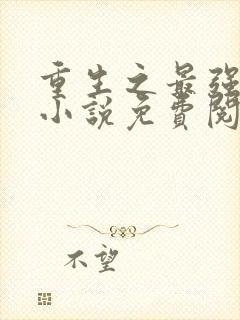 重生之最强
小説免費閱
不望